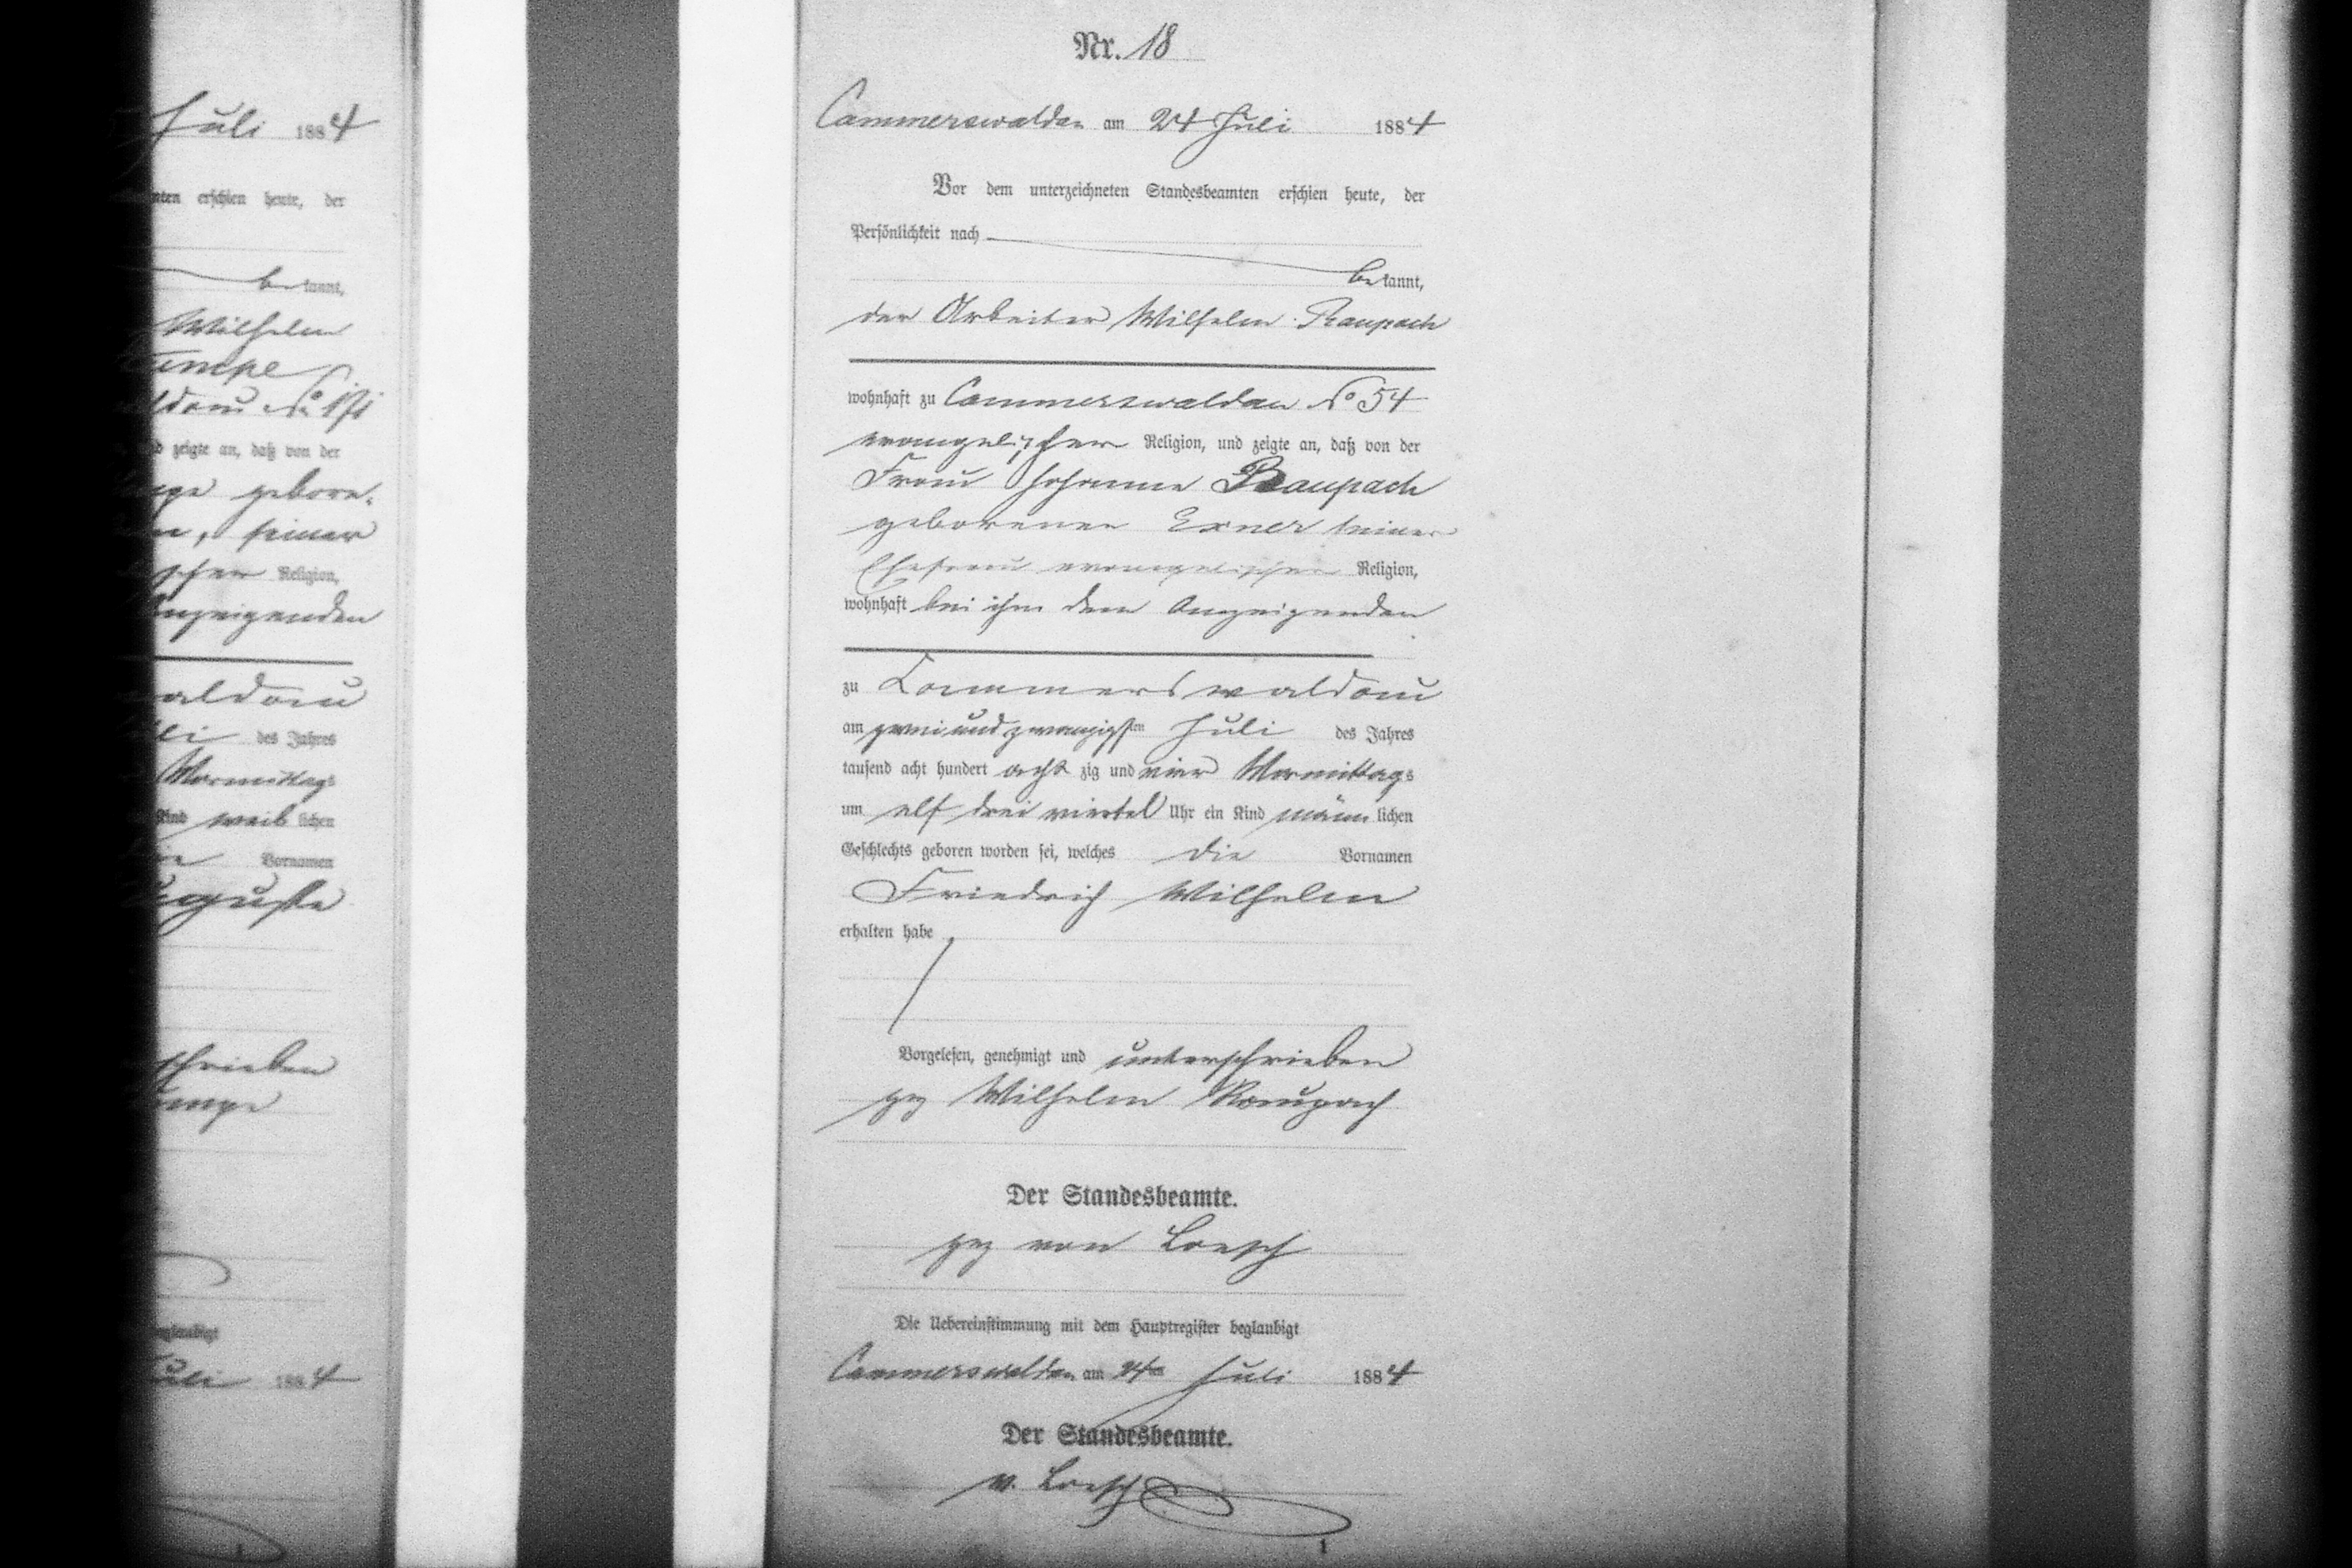 Juli 1884
erschien heute, der
bekannt,
Wilhelm
zeigte an, daß von der
gebore,
seiner
Religion,
Anzeigenden
waldau
des Jahres
Vormittags
Kind weiblichen
Vornamen
Auguste
schrieben
beglaubigt
Juli 1884
Nr. 18
Cammerswaldau am 24 Juli 1884
Vor dem unterzeichneten Standesbeamten erschien heute, der
Persönlichkeit nach
bekannt,
der Arbeiter Wilhelm Raupach
wohnhaft zu Cammerswaldau No 54
evangelischer Religion, und zeigte an, daß von der
Frau Johanne Raupach
geborenen Exner seiner
Ehefrau evangelischer Religion,
wohnhaft bei ihm dem Anzeigenden
zu Cammerswaldau
am zwei und zwanzigsten Juli des Jahres
tausend acht hundert achtzig und vier Vormittags
um elf drei viertel Uhr ein Kind männlichen
Geschlechts geboren worden sei, welches die Vornamen
Friedrich Wilhelm
erhalten habe
Vorgelesen, genehmigt und unterschrieben
gez Wilhelm Raupach
Der Standesbeamte.
gez von Loesch
Die Uebereinstimmung mit dem Hauptregister beglaubigt
Cammerswaldau am 24ten Juli 1884
Der Standesbeamte.
v. Loesch